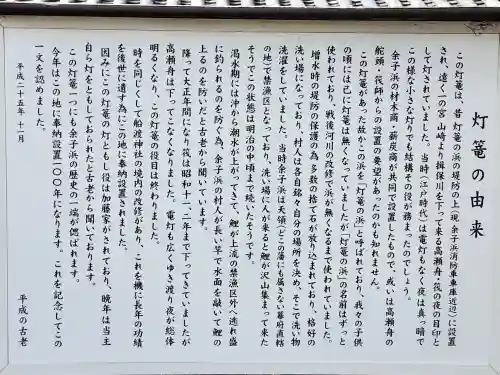 灯篭の由来
この灯篭は、昔 灯篭の浜の堤防の上(現 余子浜消防車車庫近辺)に設置
され、遠く一の宮 山崎より揖保川を下って来る高瀬舟・筏の夜の目印と
して灯されていました。当時(江戸時代)は電灯もなく夜は真っ暗で
この様な小さな灯りでも結構その役が務まったのでしょう。
余子浜の材木商、薪炭商が共同で設置したもので、或いは高瀬舟の
舵頭・筏師からの設置の要望があったのかも知れません。
この灯篭があった故かこの浜を「灯篭の浜」と呼ばれており、我々の子供
の頃には已に灯篭は無くなっていましたが「灯篭の浜」の名前はずっと
使われており、戦後河川の改修で浜が無くなるまで使われていました。
増水時の堤防の保護の為 多数の捨て石が放り込まれており、格好の
洗い場になっており、村人は各自銘々自分の場所を決め、そこで洗い物
洗濯をしていました。当時余子浜は天領(どこの藩にも属さない幕府直轄
の地で禁漁区となっており、洗い場に人が来ると鯉が沢山集まって来た
そうでこの状態は明治の中頃まで続いたそうです。
渇水期には沖から潮水が上がってきて、鯉が上流の禁漁区外へ逃れ盛
に釣られるのを防ぐ為、余子浜の村人が長い竿で水面を敲いて鯉の
上るのを防いだと古老から聞いています。
降って大正年間になり筏は昭和十一、二年まで下ってきていましたが
高瀬舟は下ってこなくなりました。電灯も広くゆき渡り夜が総体
明るくなり、この灯篭の役目は終わりました。
時を同じくして船渡神社の境内の改修があり、これを機に長年の功績
を後世に遺す為にこの地に奉納設置されました。
因みにこの灯篭の灯ともし役は加藤家がされており、晩年は当主
自ら灯をともしておられたと古老から聞いております。
この灯篭一つにも余子浜の歴史の一端が偲ばれます。
今年はこの地に奉納設置一〇〇年になります。これを記念してこの
一文を認めました。
平成二十五年十一月
平成の古老